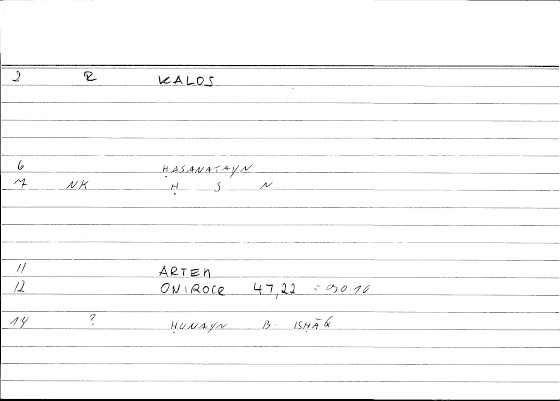 2 R KALOS
6 ḤASANATAYN
7 NK Ḥ S N
11 ARTEM
12 ONIROCR 47,22 = 90.16
14 ? ḤUNAYN B. ISḤĀQ